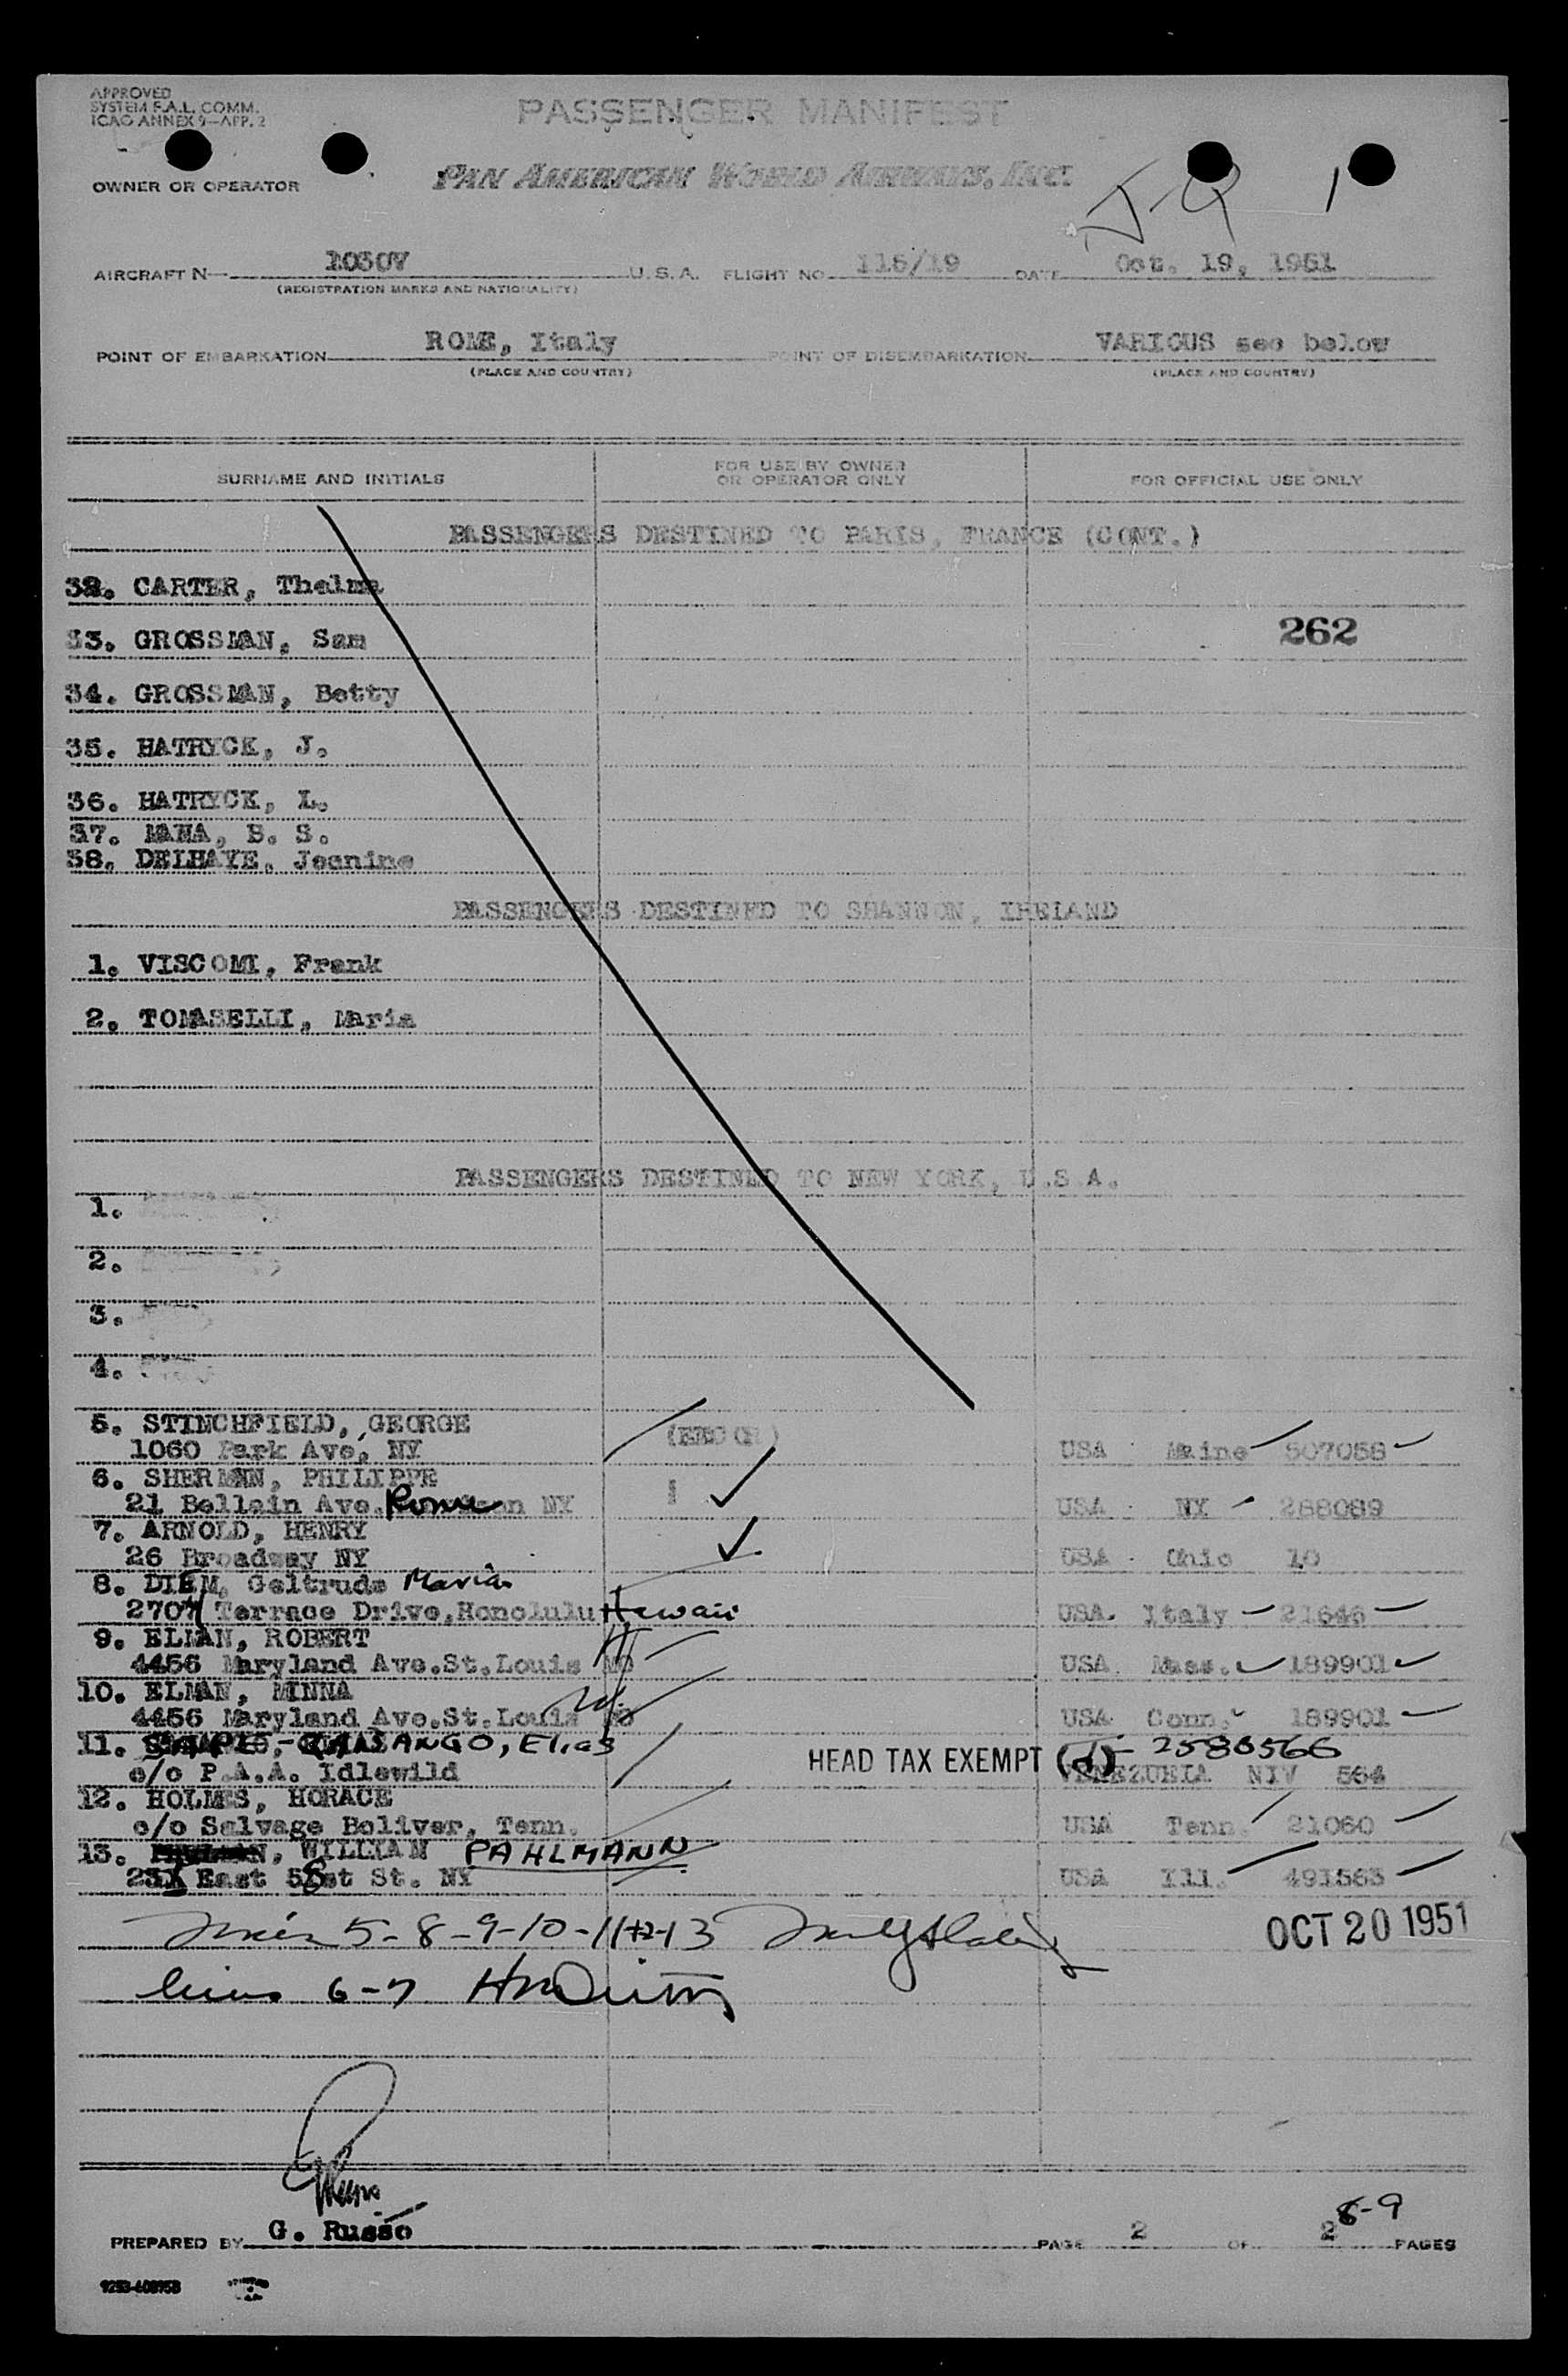 APPROVED
SYSTEM F.A.L. COMM.
ICAO ANNEX 9—APP. 2
PASSENGER MANIFEST
OWNER OR OPERATOR
PAN AMERICAN WORLD AIRWAYS, INC.
1
AIRCRAFT N— 1030V U.S.A. FLIGHT NO. 116/19 DATE Oct. 19, 1951
(REGISTRATION MARKS AND NATIONALITY)
POINT OF EMBARKATION ROME, Italy POINT OF DISEMBARKATION VARIOUS see below
(PLACE AND COUNTRY) (PLACE AND COUNTRY)
SURNAME AND INITIALS FOR USE BY OWNER OR OPERATOR ONLY FOR OFFICIAL USE ONLY
PASSENGERS DESTINED TO PARIS, FRANCE (CONT.)
32. CARTER, Thelma
33. GROSSMAN, Sam 262
34. GROSSMAN, Betty
35. HATRYCK, J.
36. HATRYCK, L.
37. MANA, B. S.
38. DELHAYE, Jeanine
PASSENGERS DESTINED TO SHANNON, IRELAND
1. VISCOMI, Frank
2. TOMASELLI, Maria
PASSENGERS DESTINED TO NEW YORK, U.S.A.
1.
2.
3.
4.
5. STINCHFIELD, GEORGE
1060 Park Ave, NY USA Maine 507058
6. SHERMAN, PHILIPPE
21 Bellain Ave. NY USA NY 288089
7. ARNOLD, HENRY
26 Broadway NY USA Ohio 10
8. DIEM, Geltrude Maria
2707 Terrace Drive, Honolulu Hawaii USA. Italy 21646
9. ELMAN, ROBERT
4456 Maryland Ave. St. Louis MO USA Mass. 189901
10. ELMAN, MINNA
4456 Maryland Ave. St. Louis MO USA Conn. 189901
11. ANGO, Elias HEAD TAX EXEMPT 2586566
c/o P.A.A. Idlewild VENEZUELA NIV 564
12. HOLMES, HORACE
c/o Salvage Boliver, Tenn. USA Tenn. 21060
13. WILLIAM PAHLMANN
East St. NY USA Ill. 491563
5-8-9-10-11-12-13 OCT 20 1951
lines 6-7
PREPARED BY G. Russo PAGE 2 OF 2 PAGES
8-9